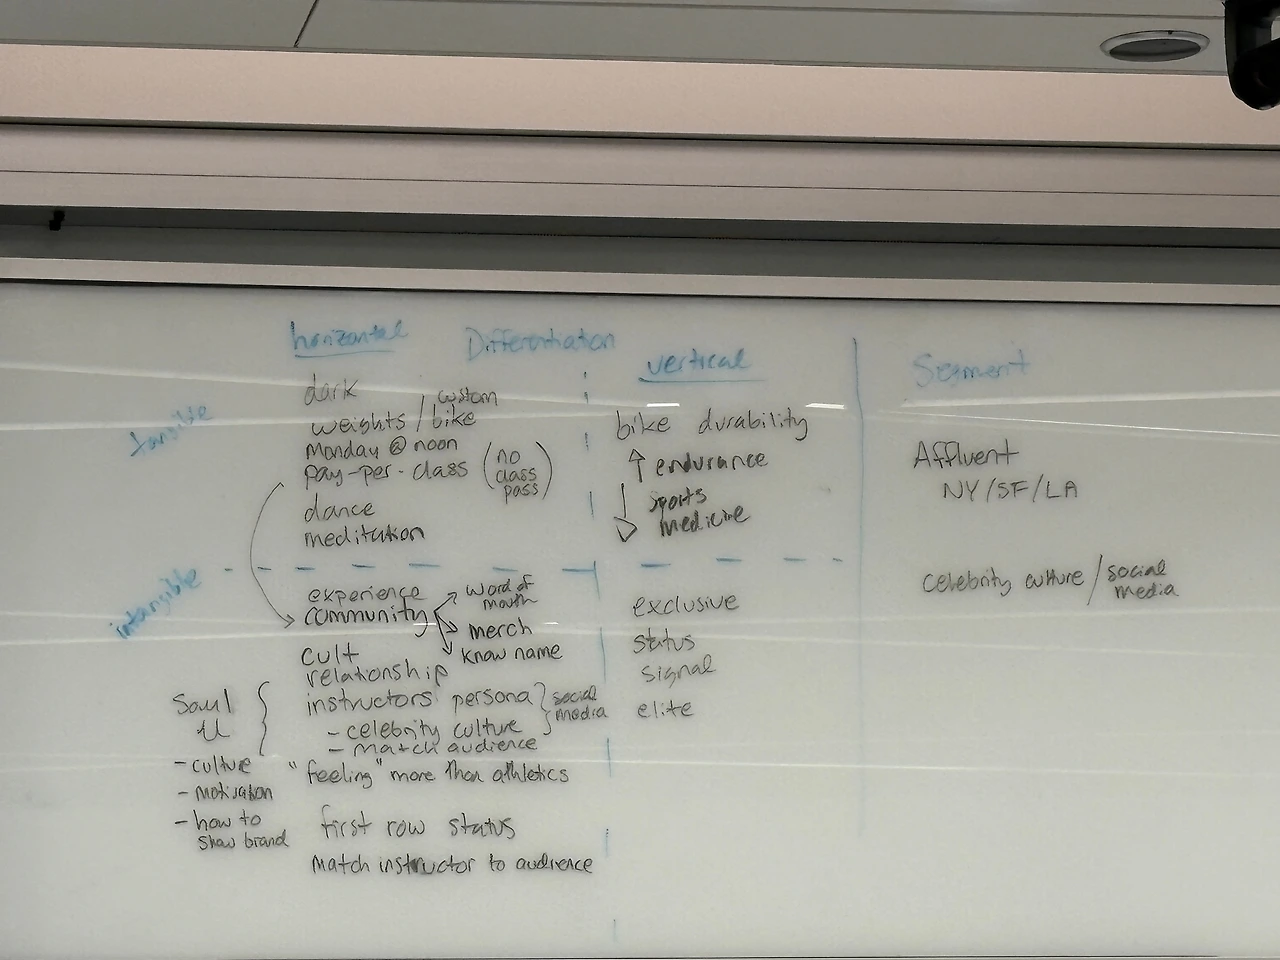 horizontal
Differentiation
vertical
Segment
tangible
dark
weights / custom
bike
Monday @ noon
pay-per-class (no
class
pass)
dance
meditation
bike durability
↑ endurance
↓ sports
medicine
Affluent
NY/SF/LA
intangible
experience
community
word of
mouth
merch
know name
cult
relationship
Soul
U
- culture
- motivation
- how to
show brand
instructors' persona
- celebrity culture
- match audience
social
media
"feeling" more than athletics
first row status
match instructor to audience
exclusive
status
signal
elite
celebrity culture / social
media